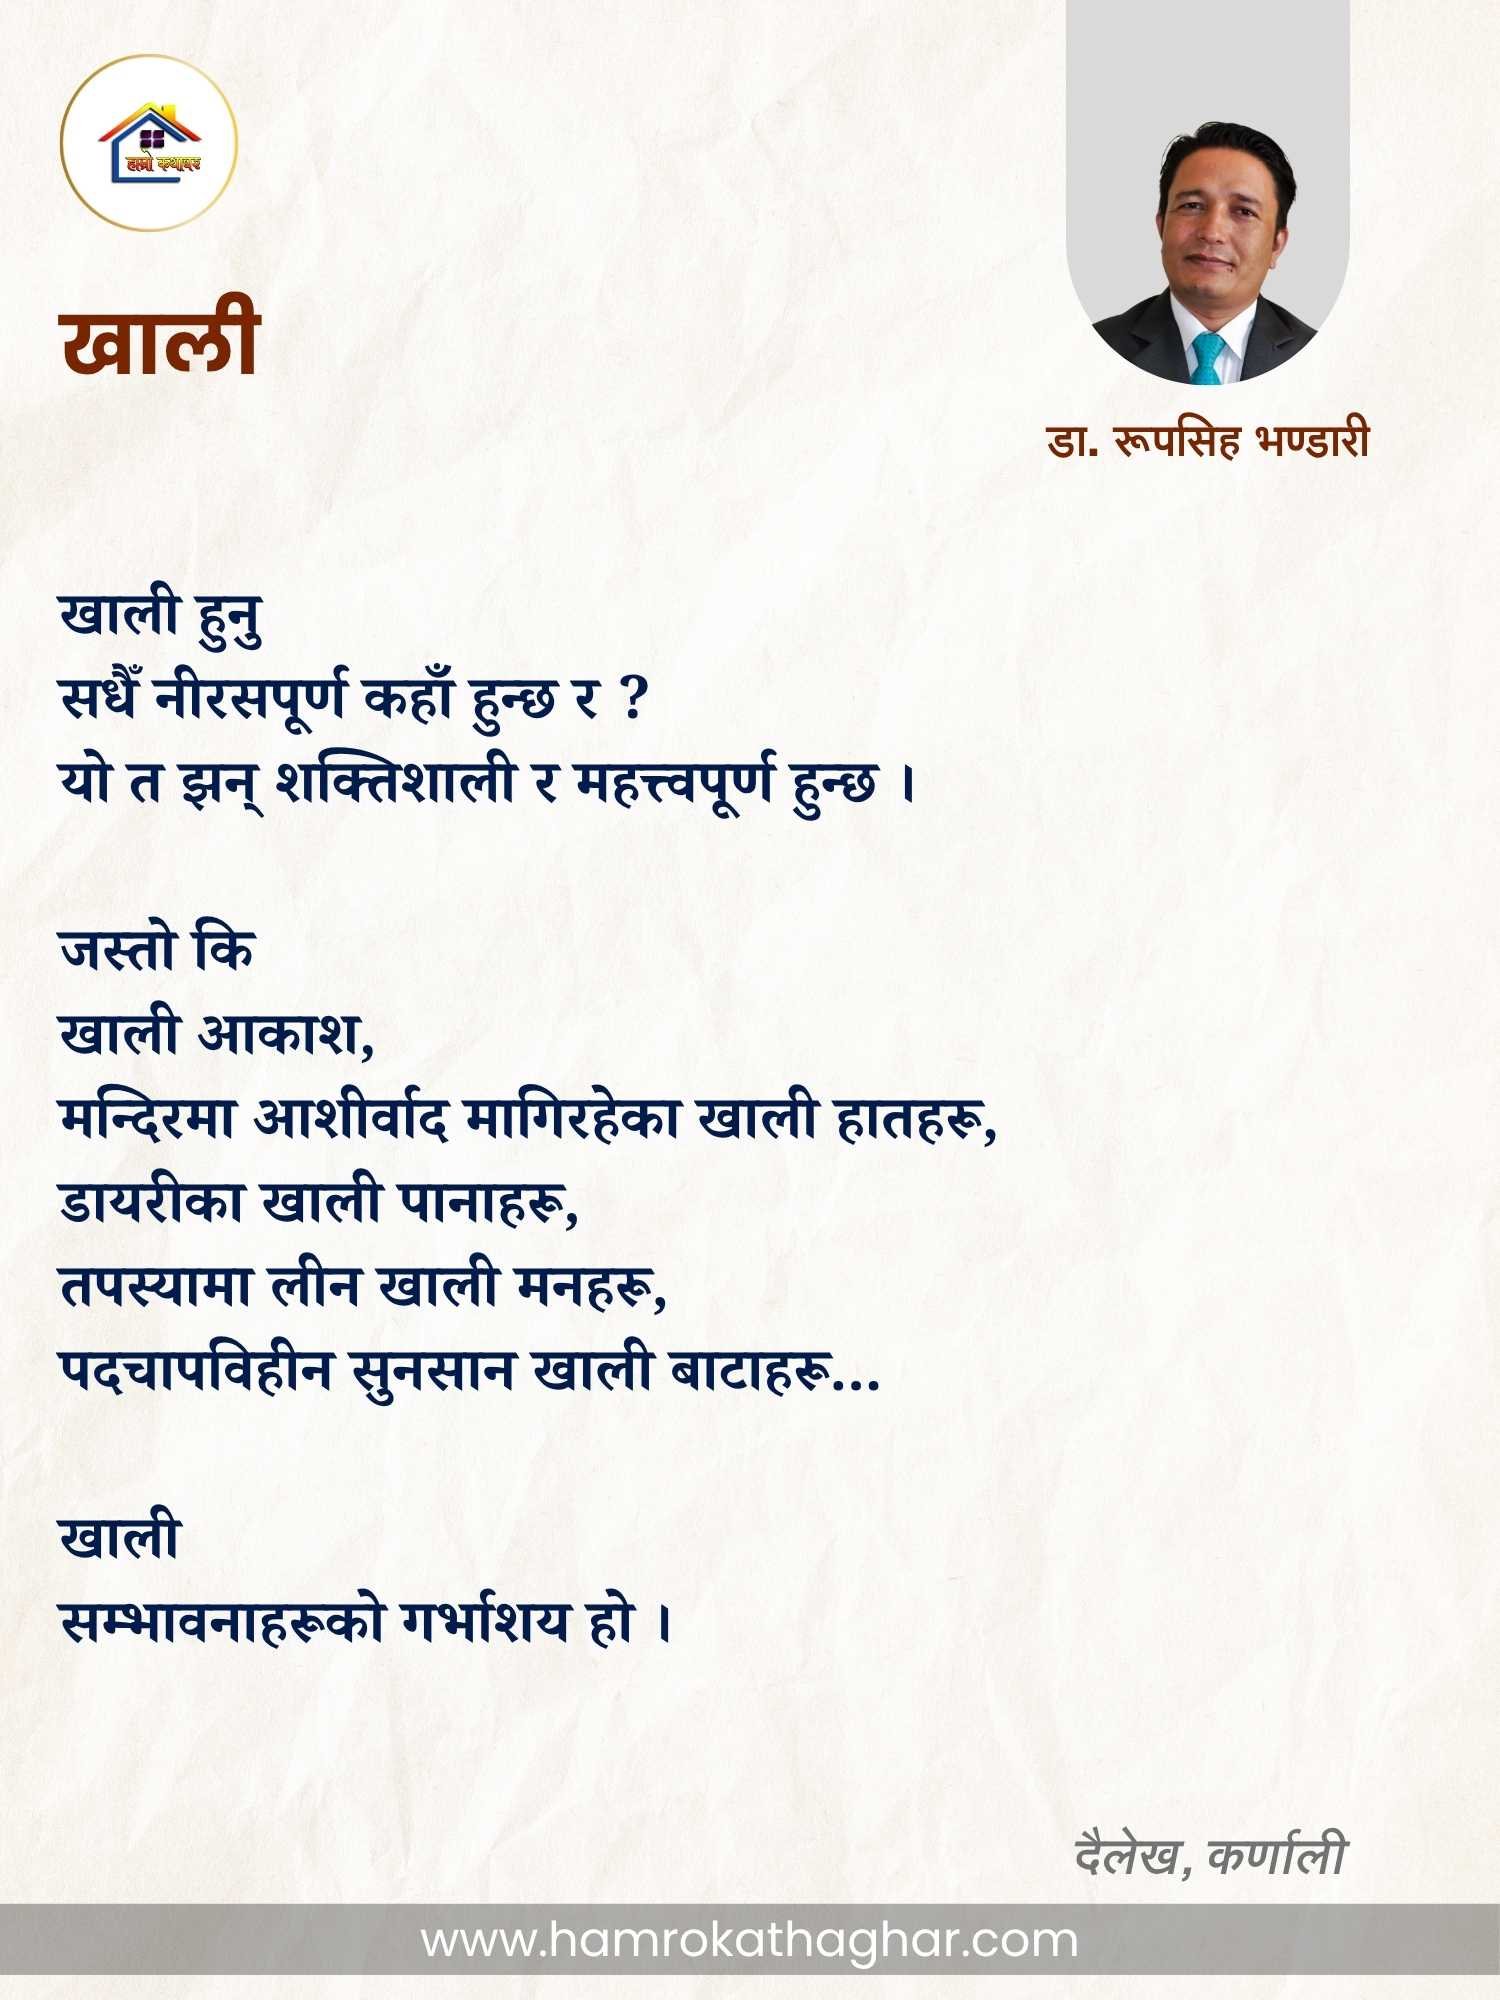 हाम्रो कथाघर
खाली
डा. रूपसिह भण्डारी
खाली हुनु
सधैँ नीरसपूर्ण कहाँ हुन्छ र ?
यो त झन् शक्तिशाली र महत्त्वपूर्ण हुन्छ ।
जस्तो कि
खाली आकाश,
मन्दिरमा आशीर्वाद मागिरहेका खाली हातहरू,
डायरीका खाली पानाहरू,
तपस्यामा लीन खाली मनहरू,
पदचापविहीन सुनसान खाली बाटाहरू...
खाली
सम्भावनाहरूको गर्भाशय हो ।
दैलेख, कर्णाली
www.hamrokathaghar.com